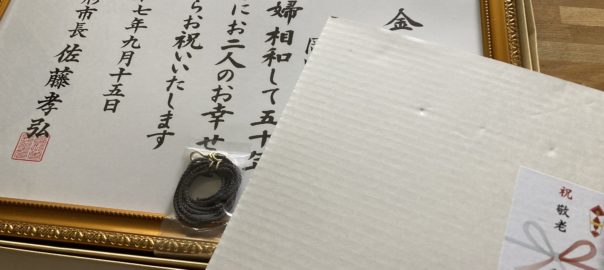 金
婦相和して五十年
にお二人のお幸せ
らお祝いいたします
七年九月十五日
形市長 佐藤孝弘
祝 敬老